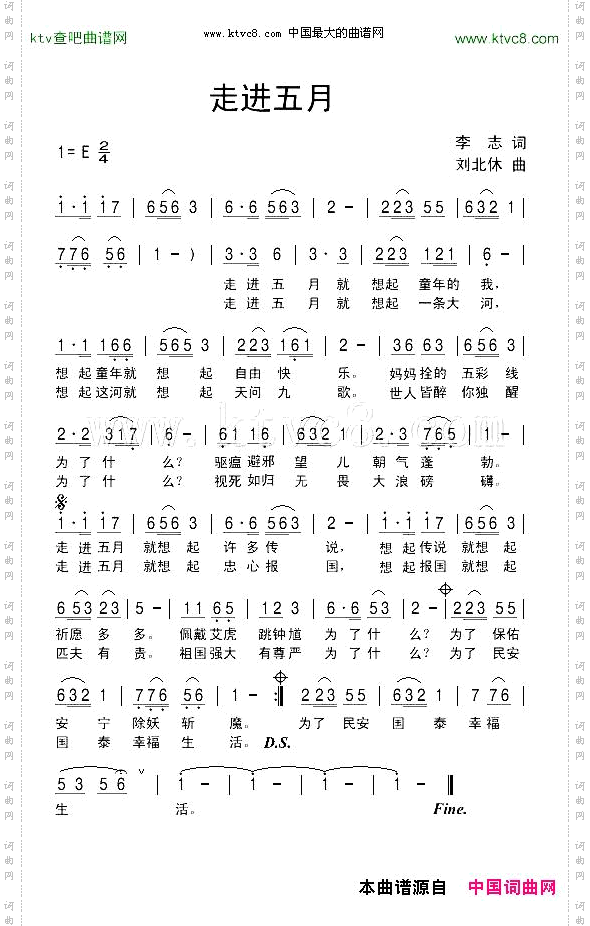 ktv查吧曲谱网 www.ktvc8.com 中国最大的曲谱网 www.ktvc8.com
走进五月
1=E 2/4
李 志 词
刘北休 曲
1·1 17 | 656 3 | 6·6 563 | 2 - | 223 55 | 632 1 |
776 56 | 1 - ) | 3·3 6 | 3·3 | 223 121 | 6 - |
走 进 五 月 就 想起 童年的 我,
走 进 五 月 就 想起 一条大 河,
1·1 166 | 565 3 | 223 161 | 2 - | 36 63 | 656 3 |
想 起童年就 想 起 自由 快 乐。 妈妈 拴的 五彩 线
想 起这河就 想 起 天问 九 歌。 世人 皆醉 你独 醒
2·2 317 | 6 - | 61 16 | 632 1 | 2·3 765 | 1 - |
为 了 什 么? 驱瘟 避邪 望 儿 朝 气 蓬 勃。
为 了 什 么? 视死 如归 无 畏 大 浪 磅 礴。
www.ktvc8.com
1·1 17 | 656 3 | 6·6 563 | 2 - | 1·1 17 | 656 3 |
走 进 五月 就想 起 许 多 传 说, 想 起 传说 就想 起
走 进 五月 就想 起 忠 心 报 国, 想 起 报国 就想 起
6 53 23 | 5 - | 11 65 | 12 3 | 6·6 53 | 2 - | 223 55 |
祈愿 多 多。 佩戴 艾虎 跳钟 馗 为 了 什 么? 为了 保佑
匹夫 有 责。 祖国 强大 有尊 严 为 了 什 么? 为了 民安
632 1 | 776 56 | 1 - :‖ 223 55 | 632 1 | 7 76 |
安 宁 除妖 斩 魔。 为了 民安 国 泰 幸 福
国 泰 幸福 生 活。 D.S.
53 56 ∨ | 1 - | 1 - | 1 - | 1 - ‖
生 活。 Fine.
本曲谱源自 中国词曲网